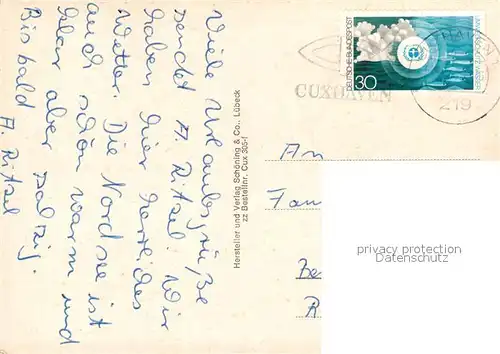 Viele Urlaubsgrüße
sendet A. Ritsel. Wir
haben hier herrliches
Wetter. Die Nordsee ist
auch schon warm und
klar aber salzig.
Bis bald A. Ritsel
Hersteller und Verlag Schöning & Co., Lübeck
zz Bestellnr. Cux 305-I
DEUTSCHE BUNDESPOST
30
CUXHAVEN
219
An
Fam
Be
R
privacy protection
Datenschutz